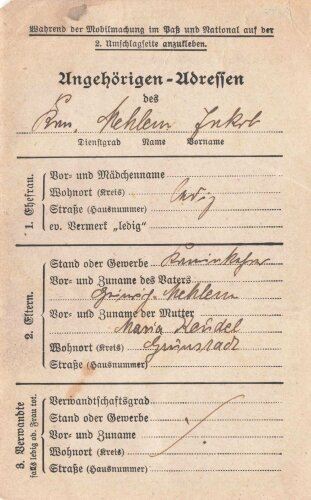 Während der Mobilmachung im Paß und National auf der
2. Umschlagseite anzukleben.
Angehörigen-Adressen
des
Kan. Mehlem Jakob
Dienstgrad Name Vorname
1. Ehefrau.
Vor- und Mädchenname
Wohnort (Kreis)
Straße (Hausnummer)
ev. Vermerk „ledig"
ledig
2. Eltern.
Stand oder Gewerbe
Vor- und Zuname des Vaters
Heinrich Mehlem
Vor- und Zuname der Mutter
Maria Keudel
Wohnort (Kreis) Grünstadt
Straße (Hausnummer)
3. Verwandte
falls ledig od. Frau tot.
Verwandtschaftsgrad
Stand oder Gewerbe
Vor- und Zuname
Wohnort (Kreis)
Straße (Hausnummer)